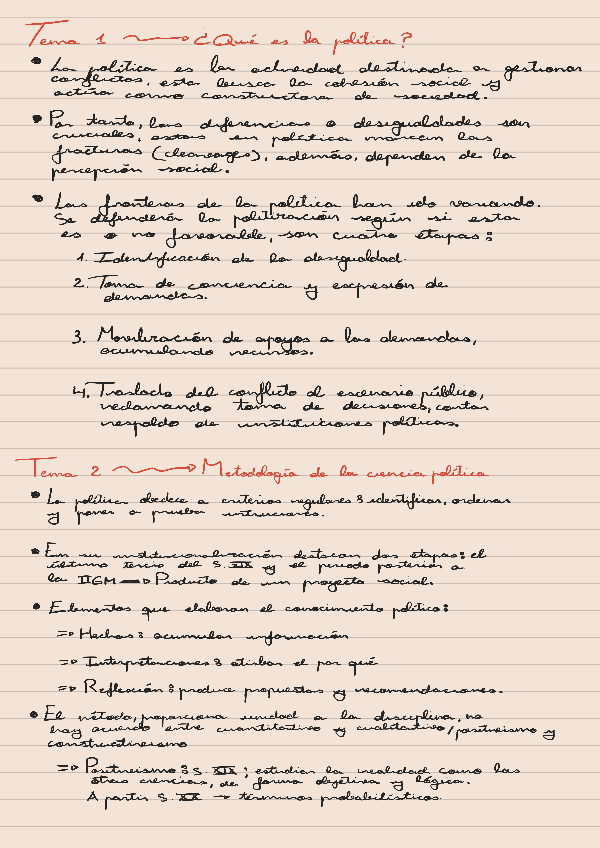 Tema 1 → ¿Qué es la política?
• La política es la actividad destinada a gestionar
conflictos, esta busca la cohesión social y
actúa como constructora de sociedad.
• Por tanto, las diferencias o desigualdades son
cruciales, estas en política marcan las
fracturas (cleavages), además, dependen de la
percepción social.
• Las fronteras de la política han ido variando.
Se defenderá la politización según si esta
es o no favorable, son cuatro etapas:
1. Identificación de la desigualdad.
2. Toma de conciencia y expresión de
demandas.
3. Movilización de apoyos a las demandas,
acumulando recursos.
4. Traslado del conflicto al escenario público,
reclamando toma de decisiones, contar
respaldo de instituciones políticas.
Tema 2 → Metodología de la ciencia política
• La política obedece a criterios regulares: identificar, ordenar
y poner a prueba intuiciones.
• En su institucionalización destacan dos etapas: el
último tercio del S. XIX y el periodo posterior a
la IIGM → Producto de un proyecto social.
• Elementos que elaboran el conocimiento político:
⇒ Hechos: acumular información
⇒ Interpretaciones: atisban el por qué
⇒ Reflexión: produce propuestas y recomendaciones.
• El método, proporciona unidad a la disciplina, no
hay acuerdo entre cuantitativo y cualitativo/positivismo y
constructivismo
⇒ Positivismo: S. XIX; estudian la realidad como las
otras ciencias, de forma objetiva y lógica.
A partir S. XX → términos probabilísticos.